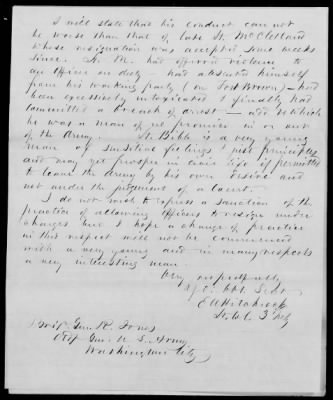 I will state that his conduct can not
be worse than that of late Lt. McClelland
whose resignation was accepted some weeks
since. Lt. Mc. had offered violence to
an Officer on duty - had absented himself
from his working party (on Fort Brown) - had
been excessively intoxicated & finally had
committed a breach of arrest - add to which
he was a man of no promise in or out
of the Army. Lt. Bibb is a very young
man of sensitive feelings & just principles
and may yet prosper in civic life if permitted
to leave the Army by his own desire and
not under the judgement of a Court.
I do not wish to express a sanction of the
practice of allowing Officers to resign under
charges but I hope a change of practice
in this respect will not be commenced
with a very young and in many respects
a very interesting man.
Very respectfully
Yr. Ob. Svt.
E A Hitchcock
Lt. Col. 3 Inf
Brig. Gen. R. Jones
Adjt. Gen. U. S. Army
Washington City